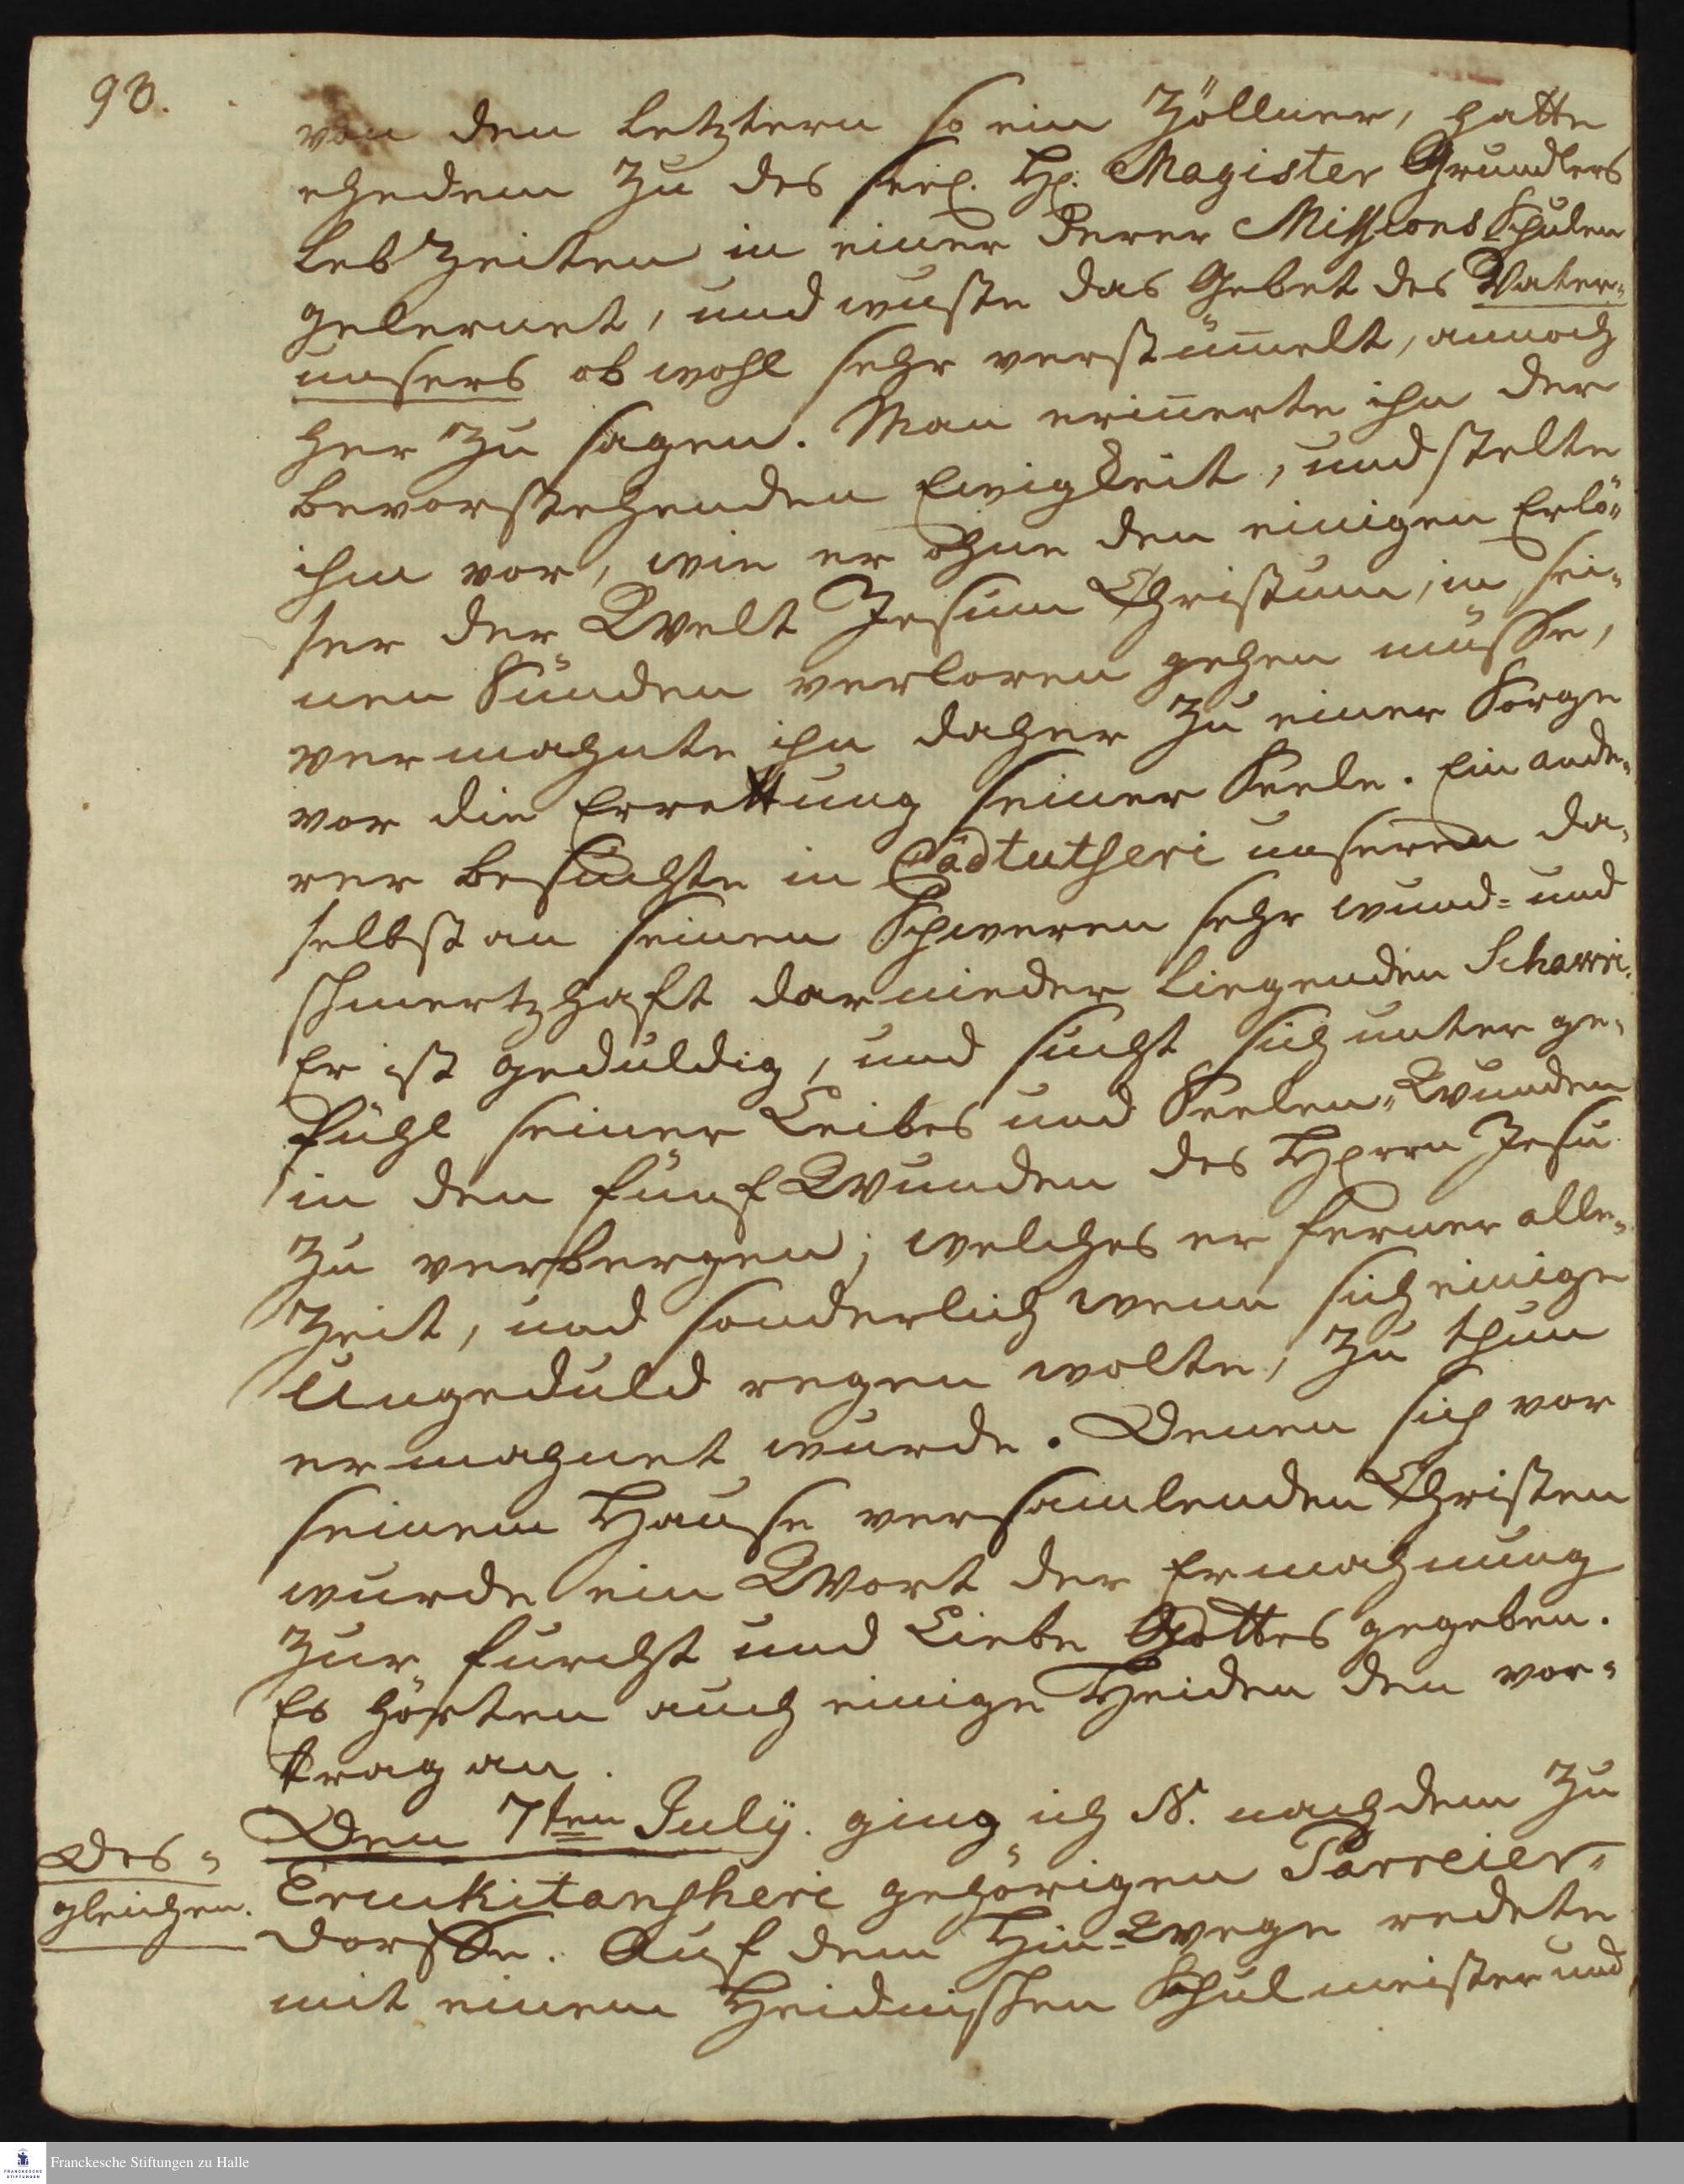 93.
von den letztern so ein Zöllner, hatte
ehedem zu des seel. Hℓ. Magister Grundlers
Leb Zeiten in einer derer Missions Schulen
gelernet, und wuste das Gebet des Vater-
unsers ob wohl sehr verstüm̄elt, annoch
her zu sagen. Man erin̄erte ihn der
bevorstehenden Ewigkeit, und stelte
ihm vor, wie er ohne den einigen Erlö-
ser der Welt Jesum Christum, in sei-
nen Sünden verloren gehen müsse,
vermahnte ihn daher zu einer Sorge
vor die Errettung seiner Seele. Ein ande-
rer besuchte in Cadtutscheri unseren da-
selbst an seinen Schweren sehr wund- und
schmertzhaft darnieder liegenden Schawri.
Er ist geduldig, und sucht sich unter ge-
fühl seiner Leibes und Seelen-Wunden
in den fünf Wunden des Herrn Jesu
zu verbergen; welches er ferner alle-
Zeit, und sonderlich wenn sich einige
Ungeduld regen wolte, zu thun
ermahnet wurde. Denen sich vor
seinem Hause versamlenden Christen
wurde ein Wort der Ermahnung
zur furcht und Liebe Gottes gegeben.
Es hörten auch einige Heiden den vor-
trag an.
Den 7ten July. ging ich N. nach dem zu
Des-
gleichen.
Erukitanscheri gehörigen Parreier-
dorffe. Auf dem Hin-Wege redete
mit einem Heidnischen Schulmeister und
Franckesche Stiftungen zu Halle